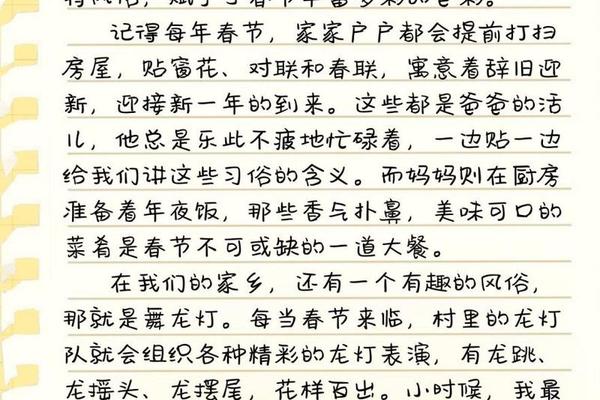 风俗，赋予了春节丰富多彩的色彩。
记得每年春节，家家户户都会提前打扫
房屋，贴窗花、对联和春联，寓意着辞旧迎
新，迎接新一年的到来。这些都是爸爸的活
儿，他总是乐此不疲地忙碌着，一边贴一边
给我们讲这些习俗的含义。而妈妈则在厨房
准备着年夜饭，那些香气扑鼻，美味可口的
菜肴是春节不可或缺的一道大餐。
在我们的家乡，还有一个有趣的风俗，
那就是舞龙灯。每当春节来临，村里的龙灯
队就会组织各种精彩的龙灯表演，有龙跳、
龙摇头、龙摆尾，花样百出。小时候，我最